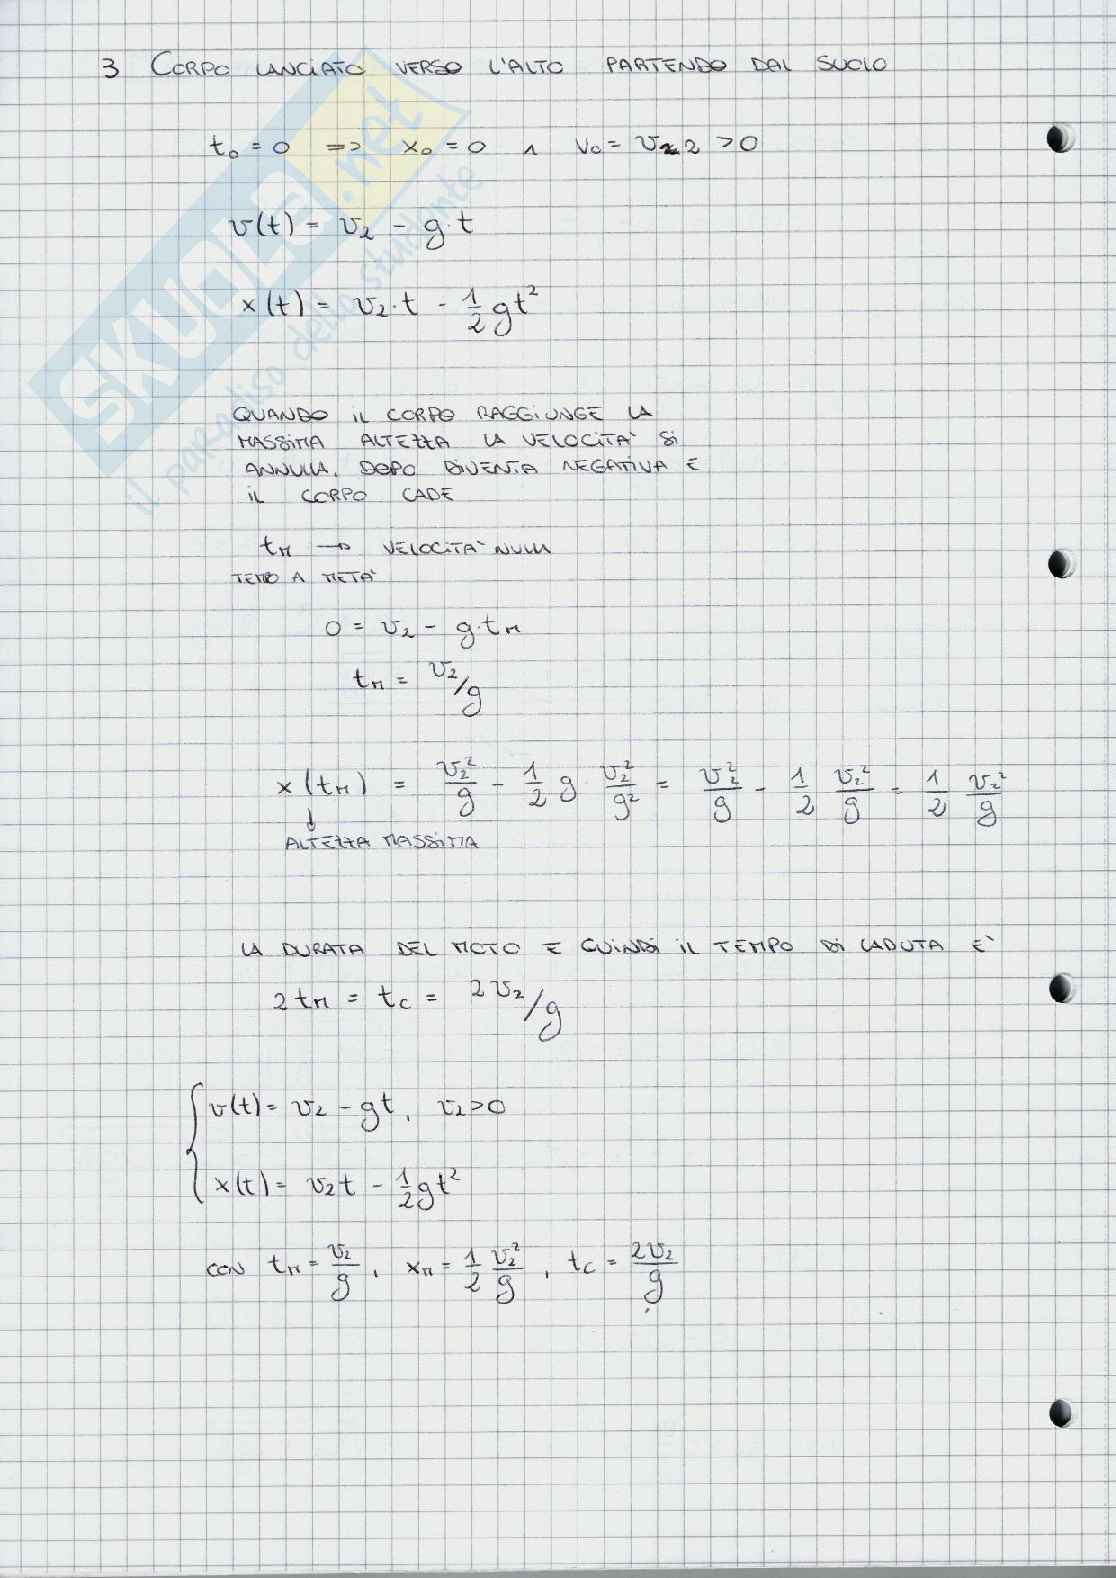 3 CORPO LANCIATO VERSO L'ALTO PARTENDO DAL SUOLO
t₀ = 0 => x₀ = 0 ∧ v₀ = v₂ 2 > 0
v(t) = v₂ - g·t
x(t) = v₂·t - 1/2 gt²
QUANDO IL CORPO RAGGIUNGE LA
MASSIMA ALTEZZA LA VELOCITA' SI
ANNULLA. DOPO DIVENTA NEGATIVA E
IL CORPO CADE
t_M → VELOCITA' NULLA
TEMPO A META'
0 = v₂ - g·t_M
t_M = v₂/g
x(t_M) = v₂²/g - 1/2 g v₂²/g² = v₂²/g - 1/2 v₂²/g = 1/2 v₂²/g
ALTEZZA MASSIMA
LA DURATA DEL MOTO E QUINDI IL TEMPO DI CADUTA E'
2t_M = t_C = 2v₂/g
v(t) = v₂ - gt, v₂>0
x(t) = v₂t - 1/2 gt²
CON t_M = v₂/g, x_M = 1/2 v₂²/g, t_C = 2v₂/g
SKUOLA.net
il paradiso dello studente